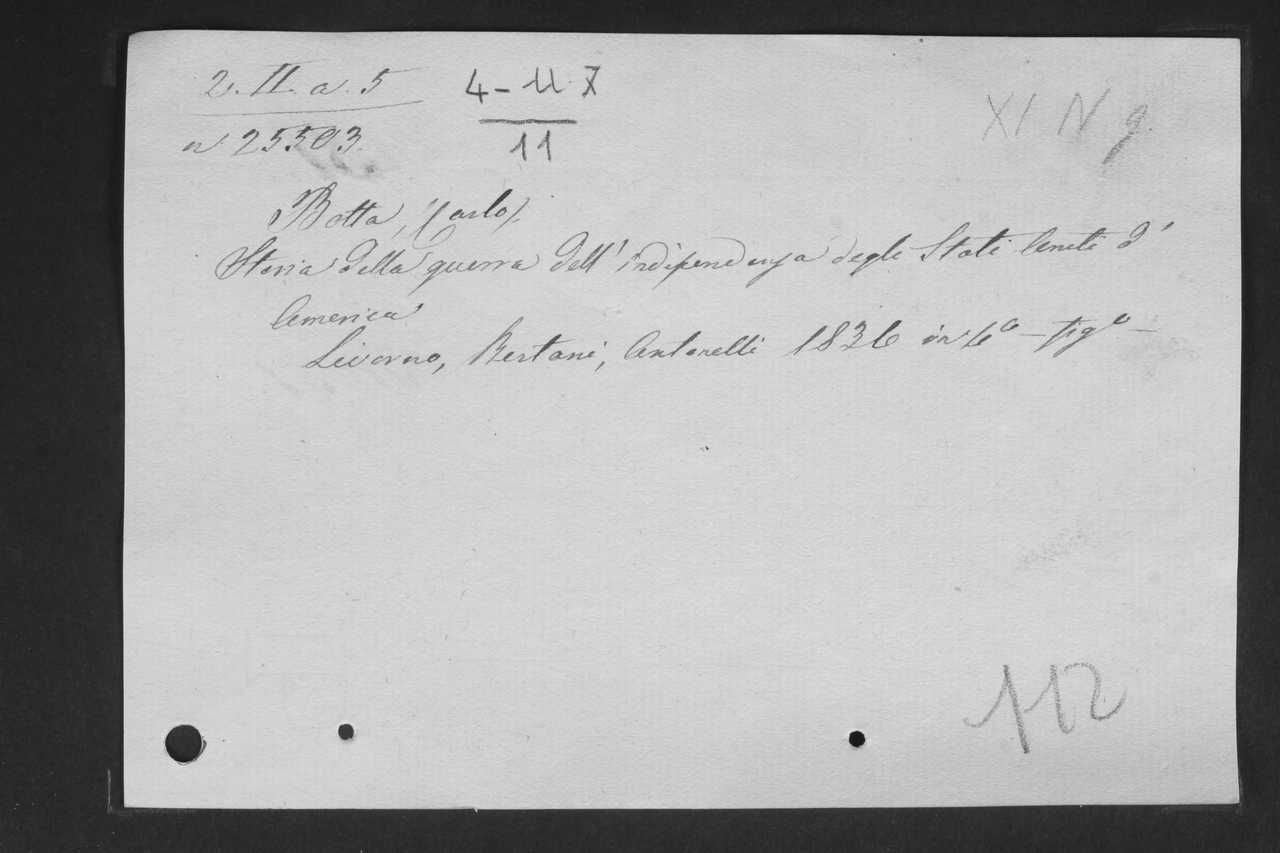 2. II. a. 5
4 - 11 X
XI N 9
n 25503.
11
Botta, (Carlo).
Storia della guerra dell'indipendenza degli Stati Uniti d'
America
Livorno, Bertani, Antonelli 1836 in 6° - figo -
112